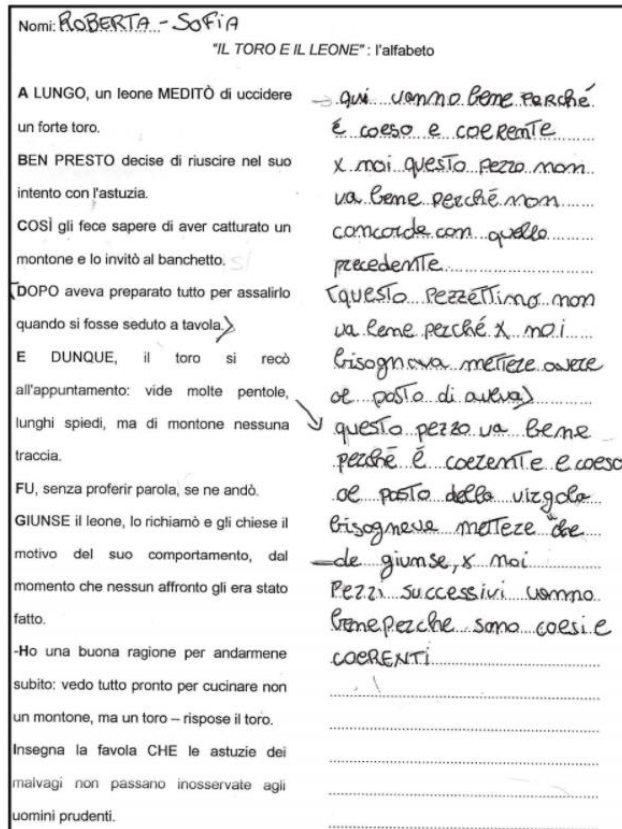 Nomi: ROBERTA - SOFIA
"IL TORO E IL LEONE" : l'alfabeto
A LUNGO, un leone MEDITÒ di uccidere
un forte toro.
BEN PRESTO decise di riuscire nel suo
intento con l'astuzia.
COSÌ gli fece sapere di aver catturato un
montone e lo invitò al banchetto.
(DOPO aveva preparato tutto per assalirlo
quando si fosse seduto a tavola.)
E DUNQUE, il toro si recò
all'appuntamento: vide molte pentole,
lunghi spiedi, ma di montone nessuna
traccia.
FU, senza proferir parola, se ne andò.
GIUNSE il leone, lo richiamò e gli chiese il
motivo del suo comportamento, dal
momento che nessun affronto gli era stato
fatto.
-Ho una buona ragione per andarmene
subito: vedo tutto pronto per cucinare non
un montone, ma un toro – rispose il toro.
Insegna la favola CHE le astuzie dei
malvagi non passano inosservate agli
uomini prudenti.
→ qui vanno bene PERCHÉ
È coeso e COERENTE
x noi questo pezzo non
va bene perché non
concorde con quello
precedente
(questo pezzettino non
va bene perché x noi
bisognava mettere avere
al posto di aveva)
questo pezzo va bene
perché è coerente e coeso
al posto della virgola
bisogneva mettere "che
de giunse, x noi
Pezzi successivi vanno
bene perche sono coesi e
COERENTI